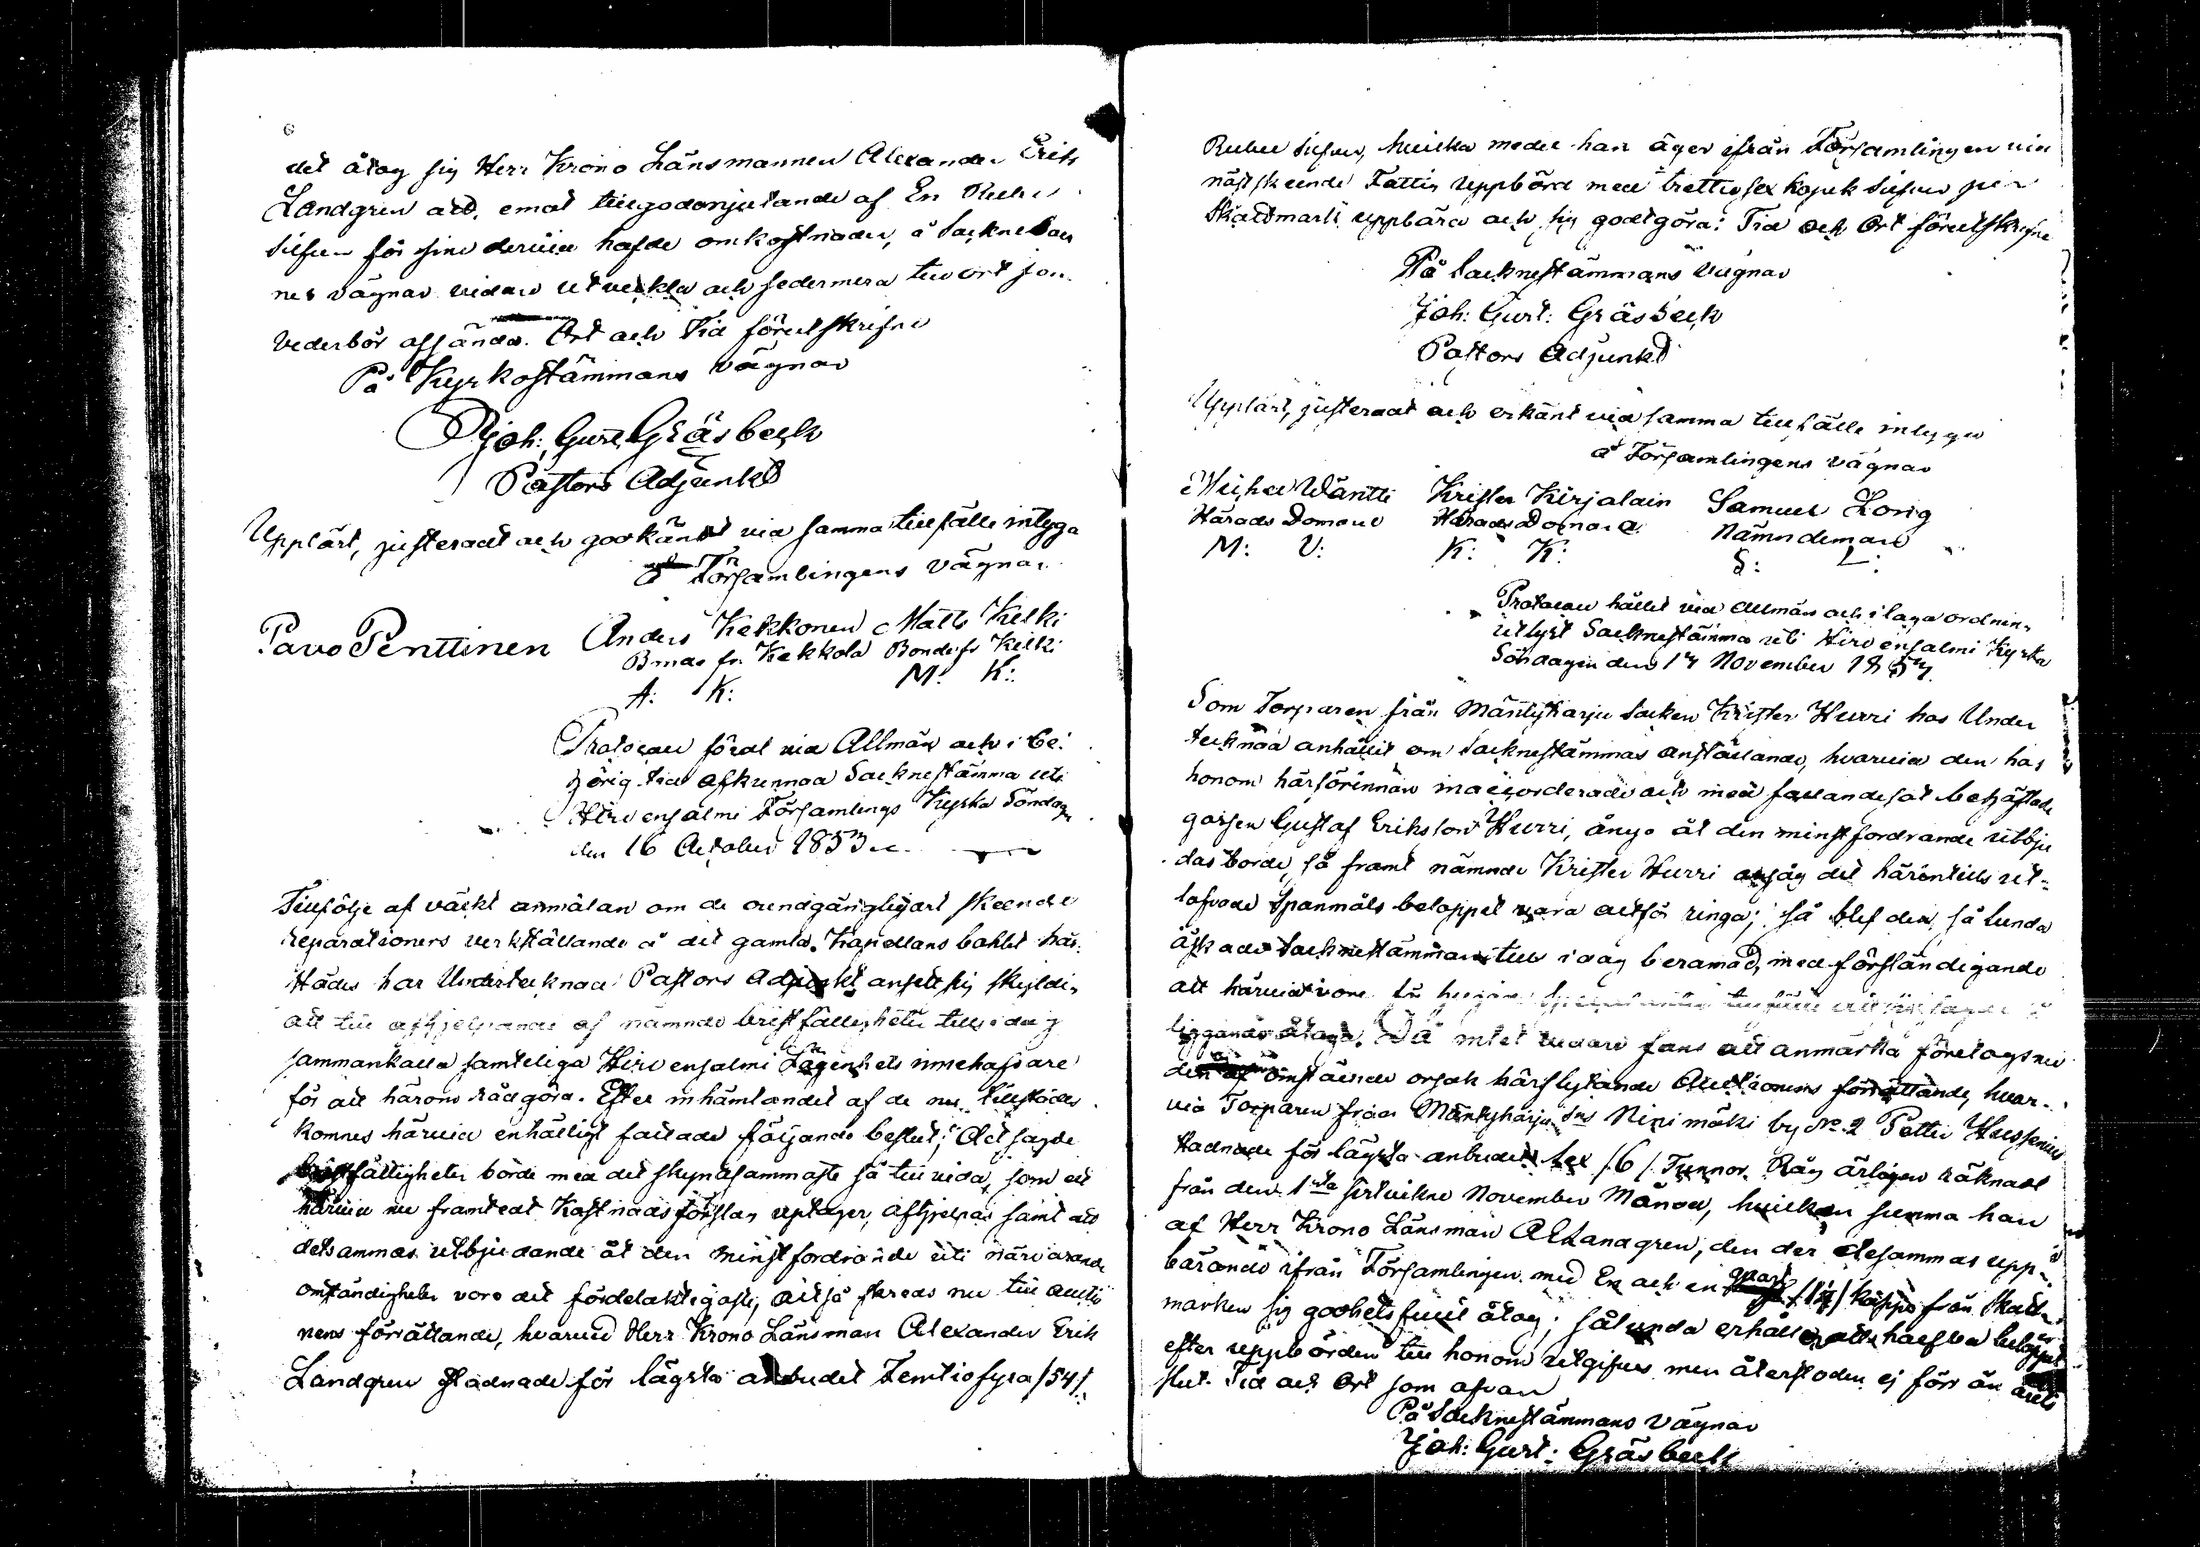 6
det åtog sig Herr Krono Länsmannen Alexander Erik
Landgren att, emot tillgodonjutande af En Rubel
Silfver för sine dervid hafde omkostnader, å Sockne
nes vägnar vidare utverkla och sedermera till ort som
vederbör afsända. Ort och Tid förutskrifne
På Kyrkostämmans vägnar
Joh: Gust: Gräsbeck
Pastors Adjunkt
Uppläst, justeradt och godkändt vid samma tillfälle intyga
å Församlingens vägnar
Pavo Penttinen Anders Kekkonen Matts Kelki
Bonde fr. Kekkola Bonde fr Kelki
A: K: M: K:
Protocoll fördt vid Allmän och i be-
hörig tid afkunnad Socknestämma uti
Hirvensalmi Församlings Kyrka Söndagen
den 16 October 1853
Tillfölje af väckt anmälan om de oundgängligast skeende
reparationers verkställande å det gamla Kapellans bohlet här-
städes har Undertecknad Pastors Adjunkt ansett sig skyldig
att till afhjelpande af nämnde bristfällighete till idag
sammankalla samteliga Hirvensalmi Lägenhets innehafvare
för att härom rådgöra. Efter inhämtandet af de nu tillstädes
komnes härvid enhälligt fattade följande beslut; At sagde
bristfälligheter borde med det skyndsammaste så till vida, som ett
härvid nu framtedt Kostnads förslag upptager, afhjelpas samt att
detsammas utbjudande åt den minstfordrande uti närvarande
omständigheter vore det fördelaktigaste, altså skreds nu till auctio
nens förrättande, hvarvid Herr Krono Länsman Alexander Erik
Landgren stadnade för lägsta anbudet Femtiofyra /54/
Rubel Silfver, hvilka medel han äger ifrån Församlingen vid
nästskeende Fattig Uppbörd med trettiosex kopek Silfver per
Skattmark uppbära och sig godtgöra. Tid och Ort förutskrifne
På Socknestämmans vägnar
Joh: Gust: Gräsbeck
Pastors Adjunkt
Uppläst, justeradt och erkänt vid samma tillfälle intyga
å Församlingens vägnar
Michel Wäntti Krister Kirjalain Samuel Zorig
Härads Domare Härads Domare Nämndeman
M: V: K: K: S: L:
Protocoll hållet vid Allmän och i laga ordning
utlyst Socknestämma uti Hirvensalmi Kyrka
Söndagen den 14 November 1853
Som Torparen från Mäntyharju Socken Krister Hurri hos Under
tecknad anhållit om Socknestämmas anställande, hvarvid den hos
honom härförinnan inaccorderade och med fallandesot behäftade
gossen Gustaf Eriksson Hurri, ånyo åt den minstfordrande utbju
das borde, så framt nämnde Krister Hurri ansåg det härintills ut-
lofvade Spanmåls beloppet vara altför ringa; så blef den, så lunda
äskade Socknestämman till idag beramad, med förständigande
att härvid vore
liggande åtaga. Då intet vidare fans att anmärka företogs nu
den af omständer orsak härflytande Auctionens förrättande, hvar-
vid Torparen från Mäntyharju Sns Niinimäki by No 2 Petter
stadnade för lägsta anbudet sex /6/ Tunnor Råg årligen räknadt
från den 1sta sistvikne November Månad, hvilken summa han
af Herr Krono Länsman Al. Landgren, den der desammas upp-
bärande ifrån Församlingen med En och en qvart /1 1/4/ kappe från Skatt-
marken sig godhetsfullt åtog; sålunda erhålla att halfva beloppet
efter uppbörden till honom utgifves men återstoden ej förr än årets
slut. Tid och Ort som ofvan
På Socknestämmans vägnar
Joh: Gust: Gräsbeck